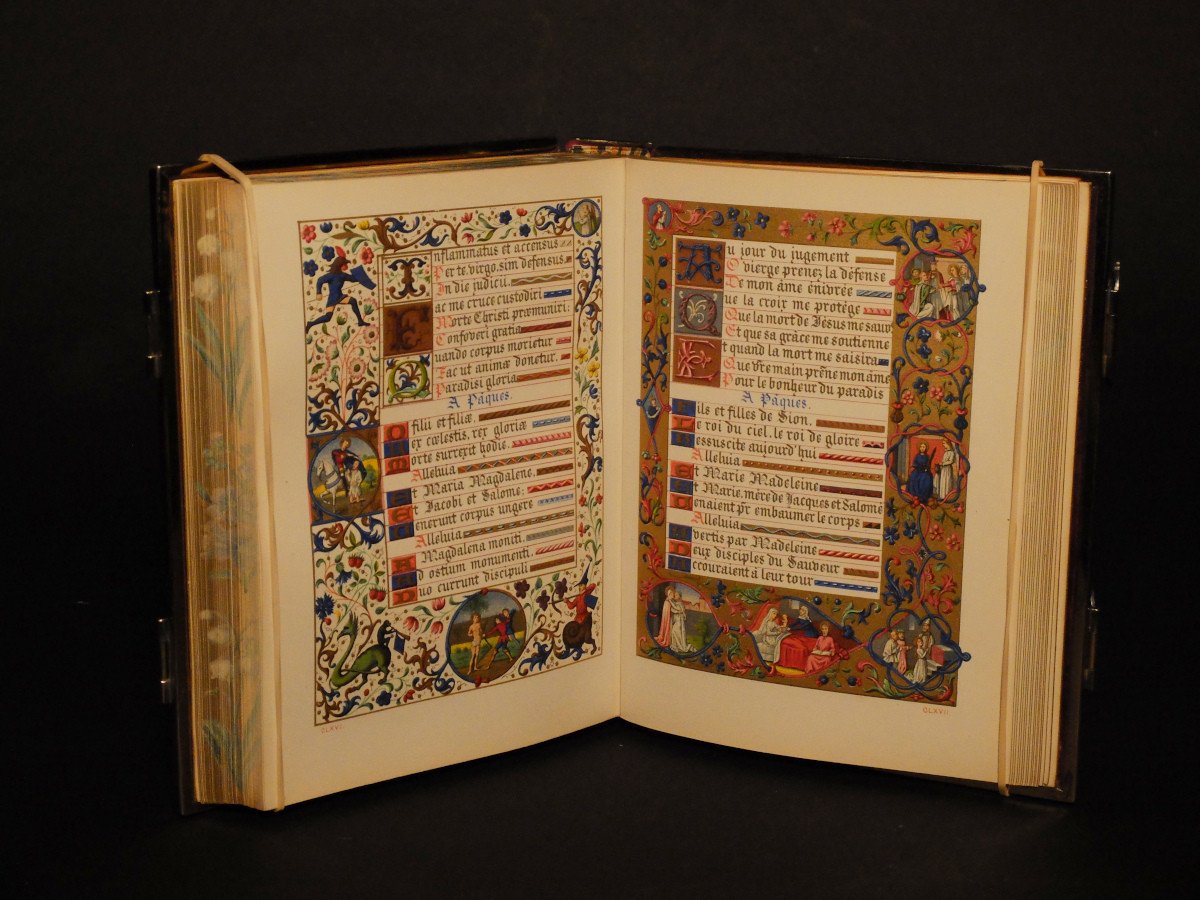 Inflammatus et accensus
Per te, virgo, sim defensus,
In die judicii.
Fac me cruce custodiri
Morte Christi præmuniri:
Confoveri gratia
Quando corpus morietur
Fac ut animæ donetur,
Paradisi gloria
A Pâques.
O filii et filiæ,
Rex cœlestis, rex gloriæ
Morte surrexit hodie.
Alleluia
Et Maria Magdalene,
Et Jacobi et Salome,
Venerunt corpus ungere
Alleluia
A Magdalena moniti,
Ad ostium monumenti,
Duo currunt discipuli
CLXVI
Au jour du jugement
O vierge prenez la défense
De mon âme énivrée
Que la croix me protège
Que la mort de Jésus me sauv
Et que sa grâce me soutienne
Et quand la mort me saisira
Que vre main prêne mon âme
Pour le bonheur du paradis
A Pâques.
Fils et filles de Sion,
Le roi du ciel, le roi de gloire
Ressuscite aujourd'hui
Alleluia
Et Marie Madeleine
Et Marie, mère de Jacques et Salomé
Venaient pr embaumer le corps
Alleluia
Avertis par Madeleine
Deux disciples du Sauveur
Accouraient à leur tour
CLXVII